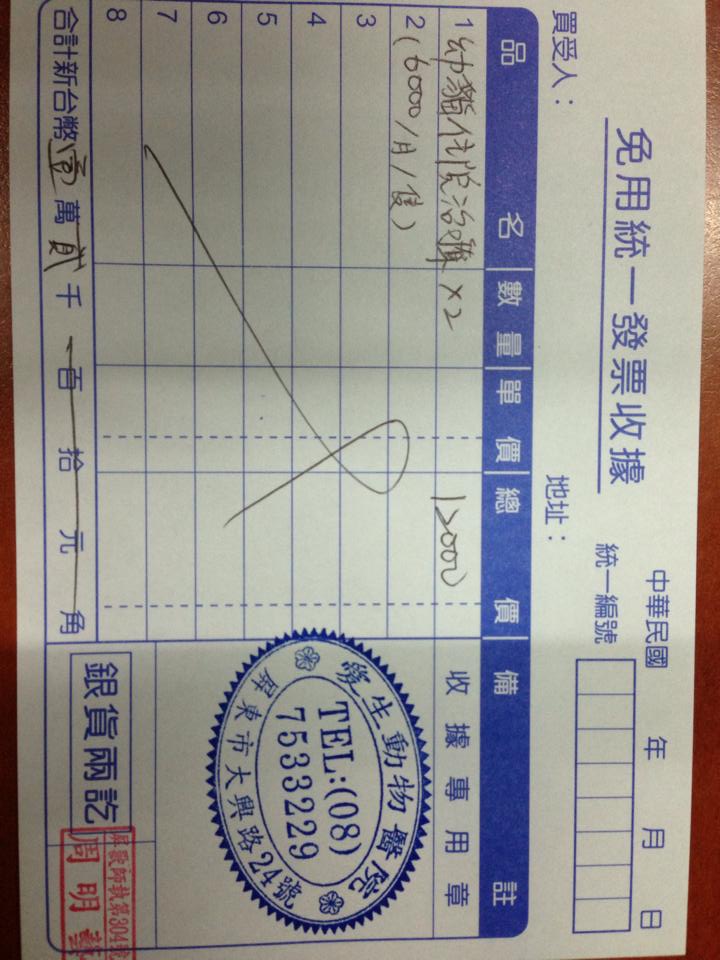 免用統一發票收據
中華民國 年 月 日
統一編號
買受人：
地址：
品名 數量 單價 總價 備註
1 幼貓住院治療 ×2 12000
2 (6000/月/隻)
3
4
5
6
7
8
合計新台幣 壹 萬 貳 千 百 拾 元 角
收據專用章
愛生動物醫院
TEL:(08)
7533229
屏東市大興路24號
銀貨兩訖
周明